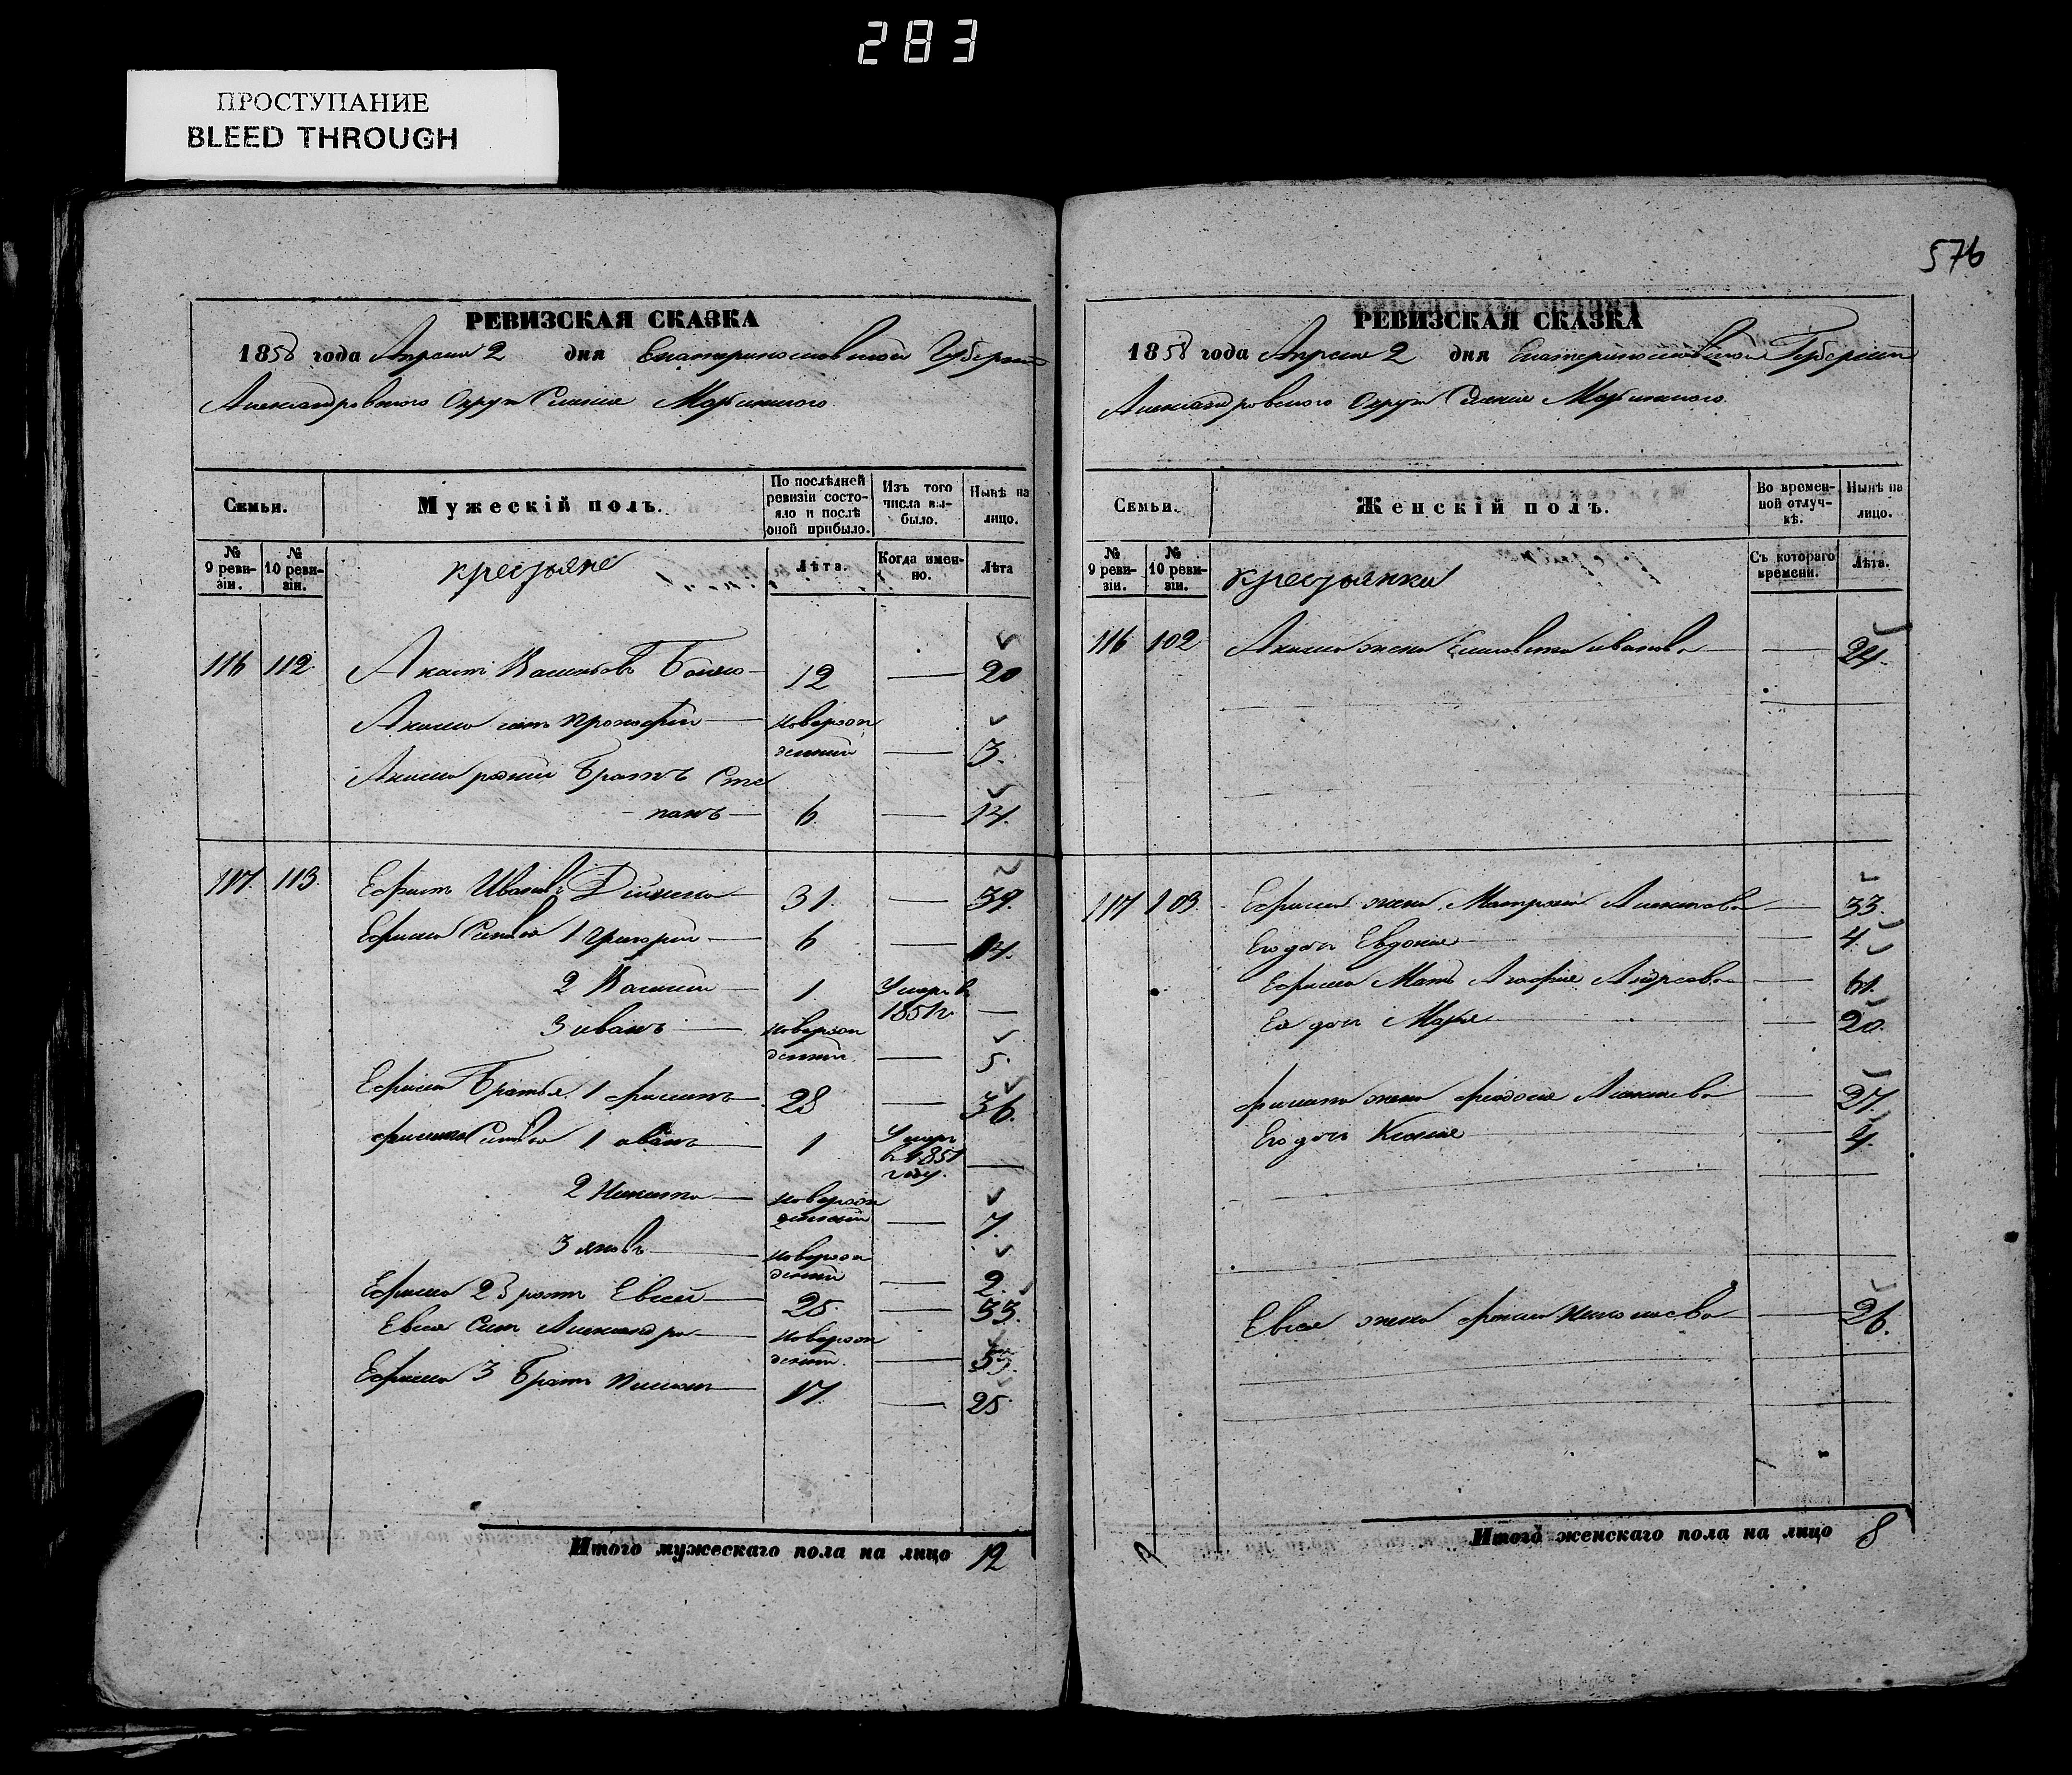 283
ПРОСТУПАНИЕ
BLEED THROUGH
РЕВИЗСКАЯ СКАЗКА
1858 года Апреля 2 дня Екатеринославской Губернии
Александровского Округа Селения Марьинского
Семьи.
Мужескій полъ.
По послѣдней ревизіи состояло и послѣ оной прибыло.
Изъ того числа выбыло.
Нынѣ на лицо.
№ 9 ревизіи.
№ 10 ревизіи.
крестьяне
Лѣта.
Когда именно.
Лѣта
116 112 Акимъ Васильевъ 12 — 20
Акима сынъ Прокофий — новорож
денный — 3.
Акима родный Братъ Сте
- панъ — 6 — 14.
117. 113. Ефимъ Ивановъ 31 — 39.
Ефима Сыновья 1 Григорий — 6 — 14.
2 Василий — 1 Умеръ в
1851г —
3 иванъ — новорож
денный — 5.
Ефима Братья 1 филипъ 28 — 36.
филипа Сыновья 1 иванъ 1 Умеръ
в 1851
году. —
2 Никита — новорож
денный — 7.
3 яковъ — новорож
денный — 2.
Ефима 2 Братъ Евсей — 25 — 33.
Евсея Сынъ Александръ — новорож
денный. —
Ефима 3 Братъ 17 — 25
Итого мужескаго пола на лицо 12
576
РЕВИЗСКАЯ СКАЗКА
1858 года Апреля 2 дня Екатеринославской Губернии
Александровского Округа Селения Марьинского.
Семьи.
Женскій полъ.
Во временной отлучкѣ.
Нынѣ на лицо.
№ 9 ревизіи.
№ 10 ревизіи.
крестьянки
Съ котораго времени.
Лѣта.
116 102 Акима жена Елисавета иванова — 24.
117 103. Ефима жена Матрона — 33.
Его дочь Евдокия — 4.
Ефима Мать Агафия Андреева — 61.
Ея дочь Марья — 20.
филипа жена феодосия — 27.
Его дочь Ксения — 4.
Евсея жена Николаева — 26.
Итого женскаго пола на лицо 8